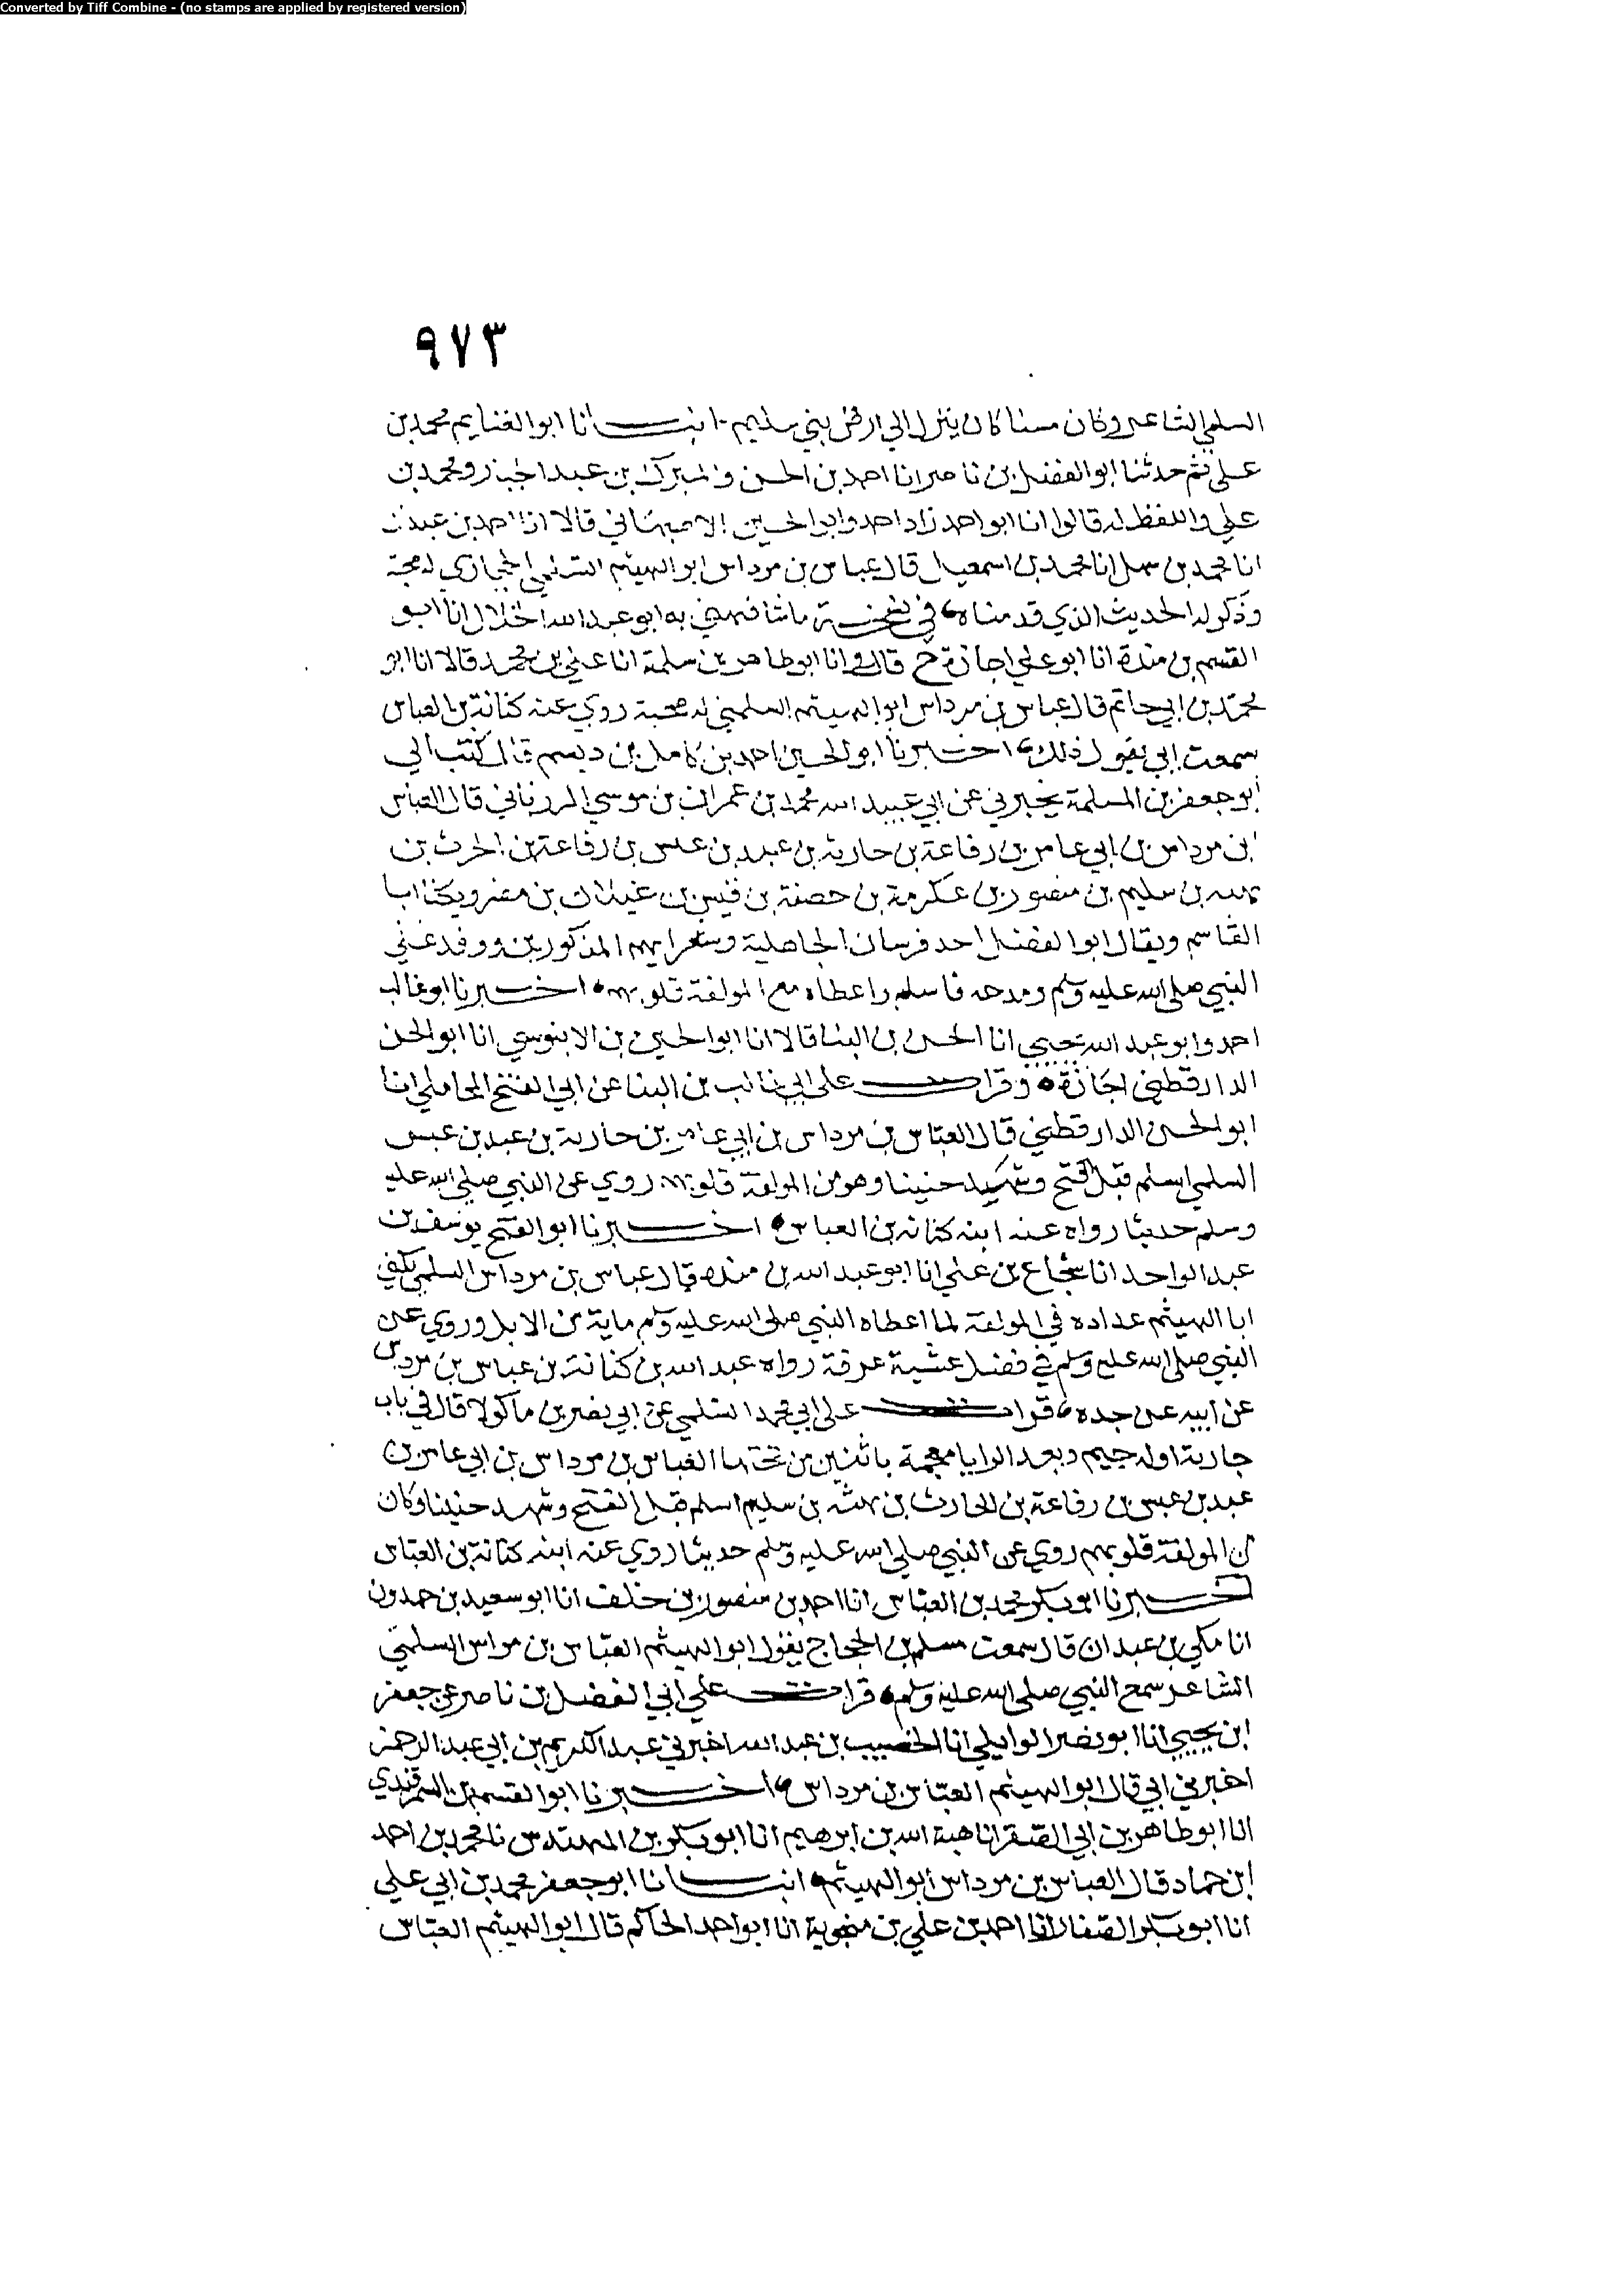 Converted by Tiff Combine - (no stamps are applied by registered version)
٩٧٣
السلمي الشاعر وكان مسنا كان ينزل الي ارض بني سليم انبـــانا ابو الغنايم محمد بن
علي ثم حدثنا ابو الفضل بن ناصر انا احمد بن الحسن والمبرك بن عبد الجبار ومحمد بن
علي واللفظ له قالوا انا ابو احمد زاد احمد وابو الحسين الاصبهاني قالا انا احمد بن عبدان
انا محمد بن سهل انا محمد بن اسمعيل قال عباس بن مرداس ابو الهيثم السلمي الحجازي له صحبة
وذكر له الحديث الذي قدمناه في نسخـــة ما شافهني به ابو عبد الله الخلال انا ابو
القسم بن منده انا ابو علي اجازة ح قال وانا ابو طاهر بن سلمة انا علي بن محمد قالا انا ابو
محمد بن ابي حاتم قال عباس بن مرداس ابو الهيثم السلمي له صحبة روي عنه كنانة بن العباس
سمعت ابي يقول ذلك اخـــبرنا ابو الحسين احمد بن كامل بن ديسم قال كتب الي
ابو جعفر بن المسلمة يخبرني عن ابي عبيد الله محمد بن عمران بن موسي المرزباني قال العباس
ابن مرداس بن ابي عامر بن رفاعة بن حارثه بن عبد بن عبس بن رفاعة بن الحرث بن
بهثه بن سليم بن منصور بن عكرمة بن خصفة بن قيس بن غيلان بن مضر ويكنا ابا
القاسم ويقال ابو الفضل احد فرسان الجاهلية وشعرايهم المذكورين ووفد علي
النبي صلي الله عليه وسلم ومدحه فاسلم واعطاه مع المولفة قلوبهم اخـــبرنا ابو غالب
احمد وابو عبد الله يحيي انا الحسن بن البنا قالا انا ابو الحسين بن الابنوسي انا ابو الحسن
الدارقطني اجازة وقرات علي ابي غالب بن البنا عن ابي الفتح المحاملي انا
ابو الحسن الدارقطني قال العباس بن مرداس بن ابي عامر بن حارية بن عبد بن عبس
السلمي اسلم قبل الفتح وشهد حنينا وهو من المولفة قلوبهم روي عن النبي صلي الله عليه
وسلم حديثا رواه عنه ابنه كنانه بن العباس اخـــبرنا ابو الفتح يوسف بن
عبد الواحد انا شجاع بن علي انا ابو عبد الله بن منده قال عباس بن مرداس السلمي يكني
ابا الهيثم عداده في المولفة لما اعطاه النبي صلي الله عليه وسلم ماية من الابل وروي عن
النبي صلي الله عليه وسلم في فضل عشية عرفة رواه عبد الله بن كنانة بن عباس بن مرداس
عن ابيه عن جده قرات علي ابي محمد السلمي عن ابي نصر بن ماكولا قال في باب
جارية اوله جيم وبعد الرا يا معجمة باثنين من تحتها العباس بن مرداس بن ابي عامر بن
عبد بن عبس بن رفاعة بن الحارث بن بهثه بن سليم اسلم قبل الفتح وشهد حنينا وكان
من المولفة قلوبهم روي عن النبي صلي الله عليه وسلم حديثا روي عنه ابنه كنانة بن العباس
اخـــبرنا ابو بكر محمد بن العباس انا احمد بن منصور بن خلف انا ابو سعيد بن حمدون
انا مكي بن عبدان قال سمعت مسلم بن الحجاج يقول ابو الهيثم العباس بن مرداس السلمي
الشاعر سمع النبي صلي الله عليه وسلم قرات علي ابي الفضل بن ناصر عن جعفر
ابن يحيي انا ابو نصر الوايلي انا الخصيب بن عبد الله اخبرني عبد الكريم بن ابي عبد الرحمن
اخبرني ابي قال ابو الهيثم العباس بن مرداس اخـــبرنا ابو القسم بن السمرقندي
انا ابو طاهر بن ابي الصقر انا هبة الله بن ابرهيم انا ابو بكر بن المهندس نا محمد بن احمد
ابن حماد قال العباس بن مرداس ابو الهيثم انبـــانا ابو جعفر محمد بن ابي علي
انا ابو بكر الصفار انا احمد بن علي بن منجوية انا ابو احمد الحاكم قال ابو الهيثم العباس